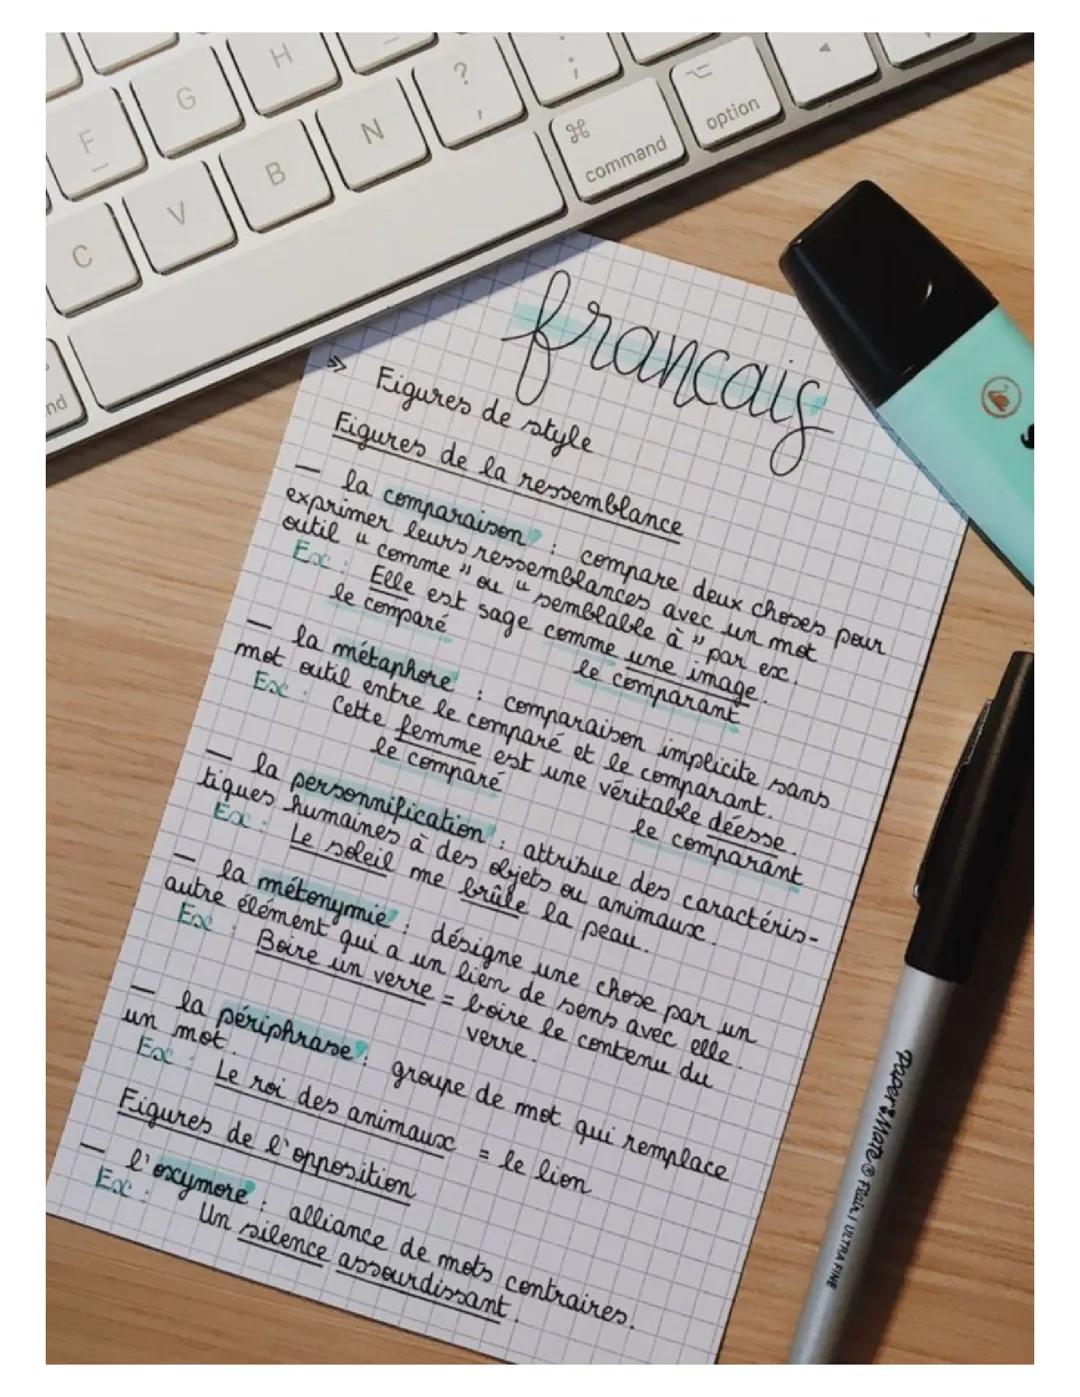 F
G
H
? ,
;
:
C
V
B
N
⌘
command
⌥
option
nd
francais
» Figures de style
Figures de la ressemblance
— la comparaison : compare deux choses pour
exprimer leurs ressemblances avec un mot
outil " comme " ou " semblable à " par ex.
Ex : Elle est sage comme une image.
le comparé le comparant
— la métaphore : comparaison implicite sans
mot outil entre le comparé et le comparant.
Ex : Cette femme est une véritable déesse.
le comparé le comparant
— la personnification : attribue des caractéris-
tiques humaines à des objets ou animaux.
Ex : Le soleil me brûle la peau.
— la métonymie : désigne une chose par un
autre élément qui a un lien de sens avec elle.
Ex : Boire un verre = boire le contenu du
verre.
— la périphrase : groupe de mot qui remplace
un mot.
Ex : Le roi des animaux = le lion
Figures de l'opposition
— l'oxymore : alliance de mots contraires.
Ex : Un silence assourdissant.
Paper Mate ® Flair | ULTRA FINE